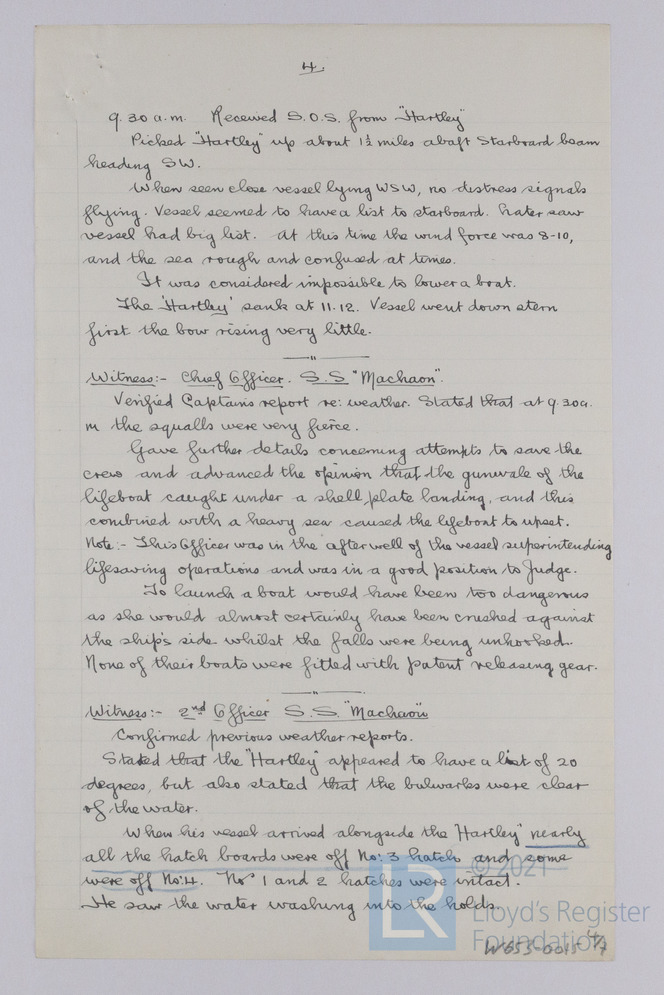 4.
9.30 a.m. Received S.O.S. from "Hartley"
Picked "Hartley" up about 1½ miles abaft Starboard beam
heading SW.
When seen close vessel lying WSW, no distress signals
flying. Vessel seemed to have a list to starboard. Later saw
vessel had big list. At this time the wind force was 8-10,
and the sea rough and confused at times.
It was considered impossible to lower a boat.
The 'Hartley' sank at 11.12. Vessel went down stern
first the bow rising very little.
Witness:- Chief Officer. S.S "Machaon".
Verified Captains report re: weather. Stated that at 9.30a.
m the squalls were very fierce.
Gave further details concerning attempts to save the
crew and advanced the opinion that the gunwale of the
lifeboat caught under a shell plate landing, and this
combined with a heavy sea caused the lifeboat to upset.
Note:- This Officer was in the after well of the vessel superintending
lifesaving operations and was in a good position to Judge.
To launch a boat would have been too dangerous
as she would almost certainly have been crushed against
the ship's side whilst the falls were being unhooked.
None of their boats were fitted with patent releasing gear.
Witness:- 2nd Officer S.S. "Machaon"
Confirmed previous weather reports.
Stated that the "Hartley" appeared to have a list of 20
degrees, but also stated that the bulwarks were clear
of the water.
When his vessel arrived alongside the "Hartley" nearly
all the hatch boards were off No: 3 hatch and some
were off No:4. Nos 1 and 2 hatches were intact.
He saw the water washing into the holds.
© 2021
LR
Lloyd's Register
Foundation
W653-0015 4/7